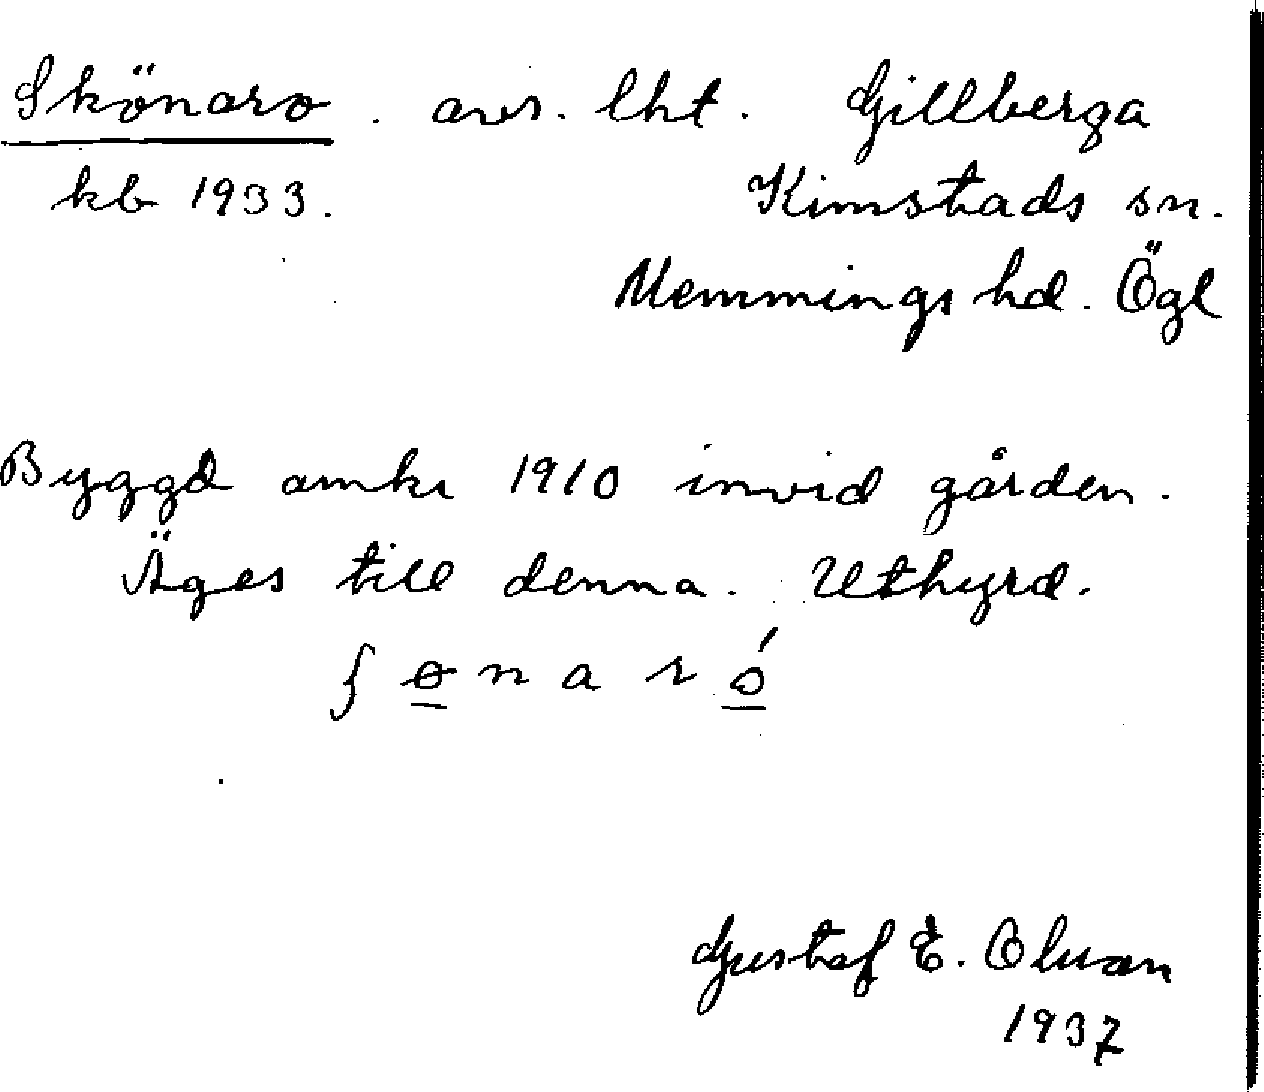 Skönaro . avs. lht. Gillberga
kb 1933. Kimstads sn.
Memmings hd. Ögl
Byggd omkr 1910 invid gården.
Äges till denna. Uthyrd.
ʃ ɵ n a r ó
Gustaf E. Olsson
1937